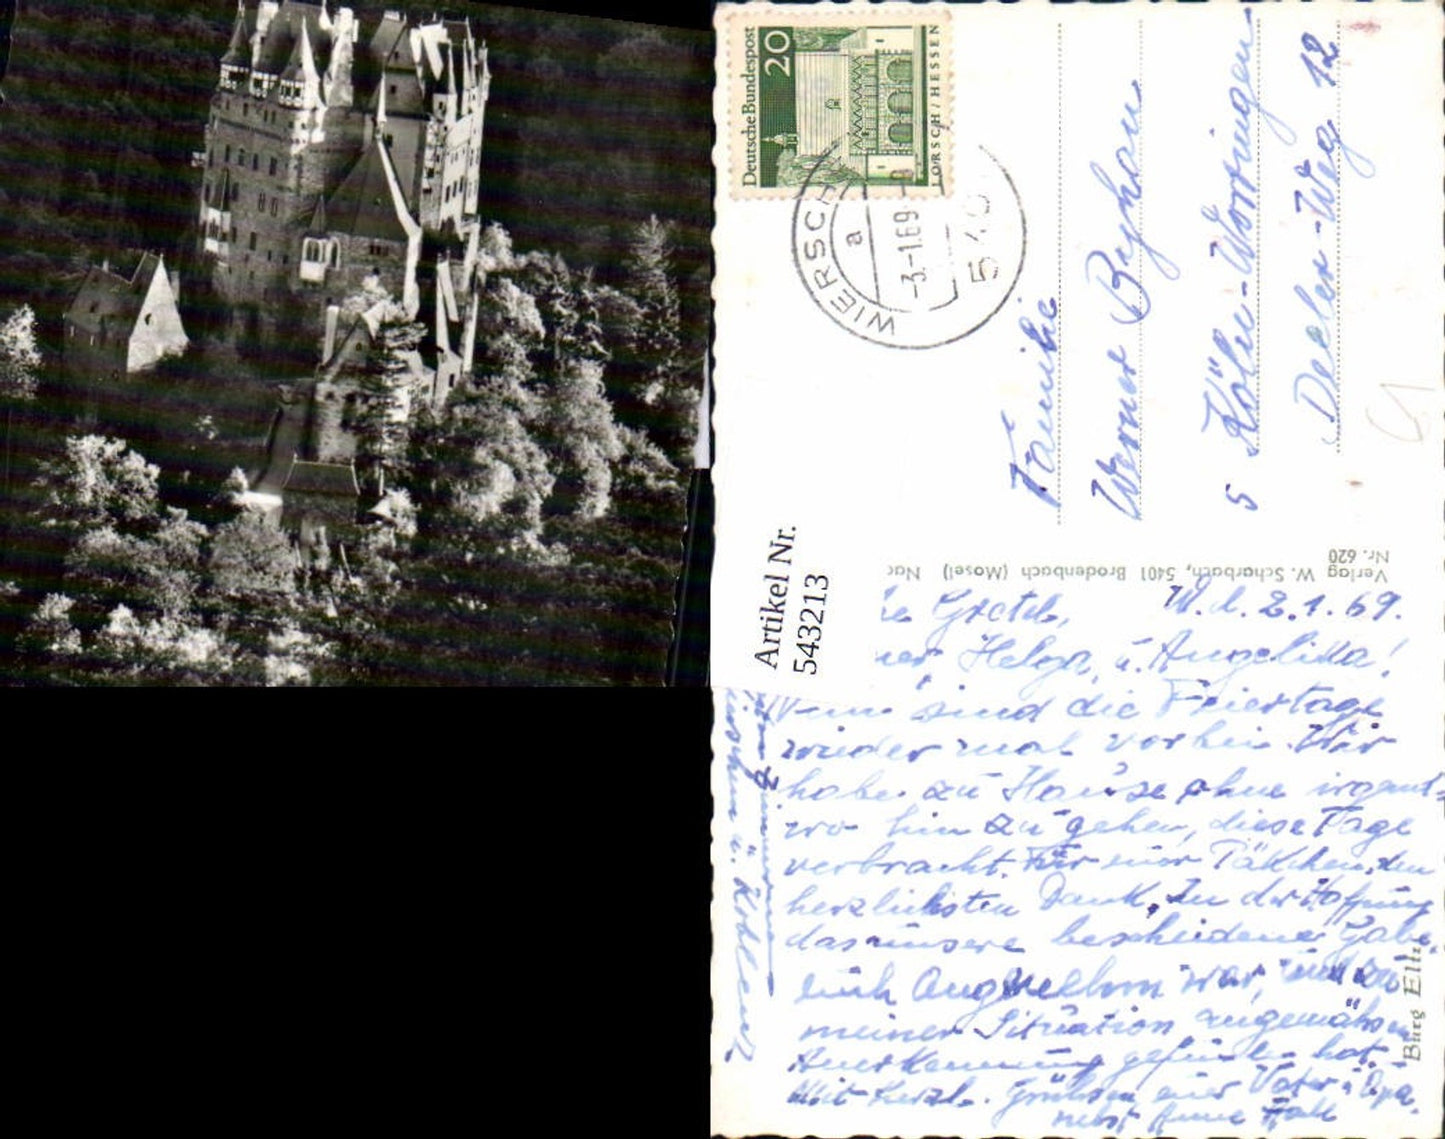 Deutsche Bundespost
20
LORSCH/HESSEN
WIERSCH
a
-3.-1.69
540
Familie
Werner Beyhou
5 Köln-Worringen
Deeler-Weg 12
Artikel Nr.
543213
Verlag W. Scharbach, 5401 Brodenbach (Mosel) Nac
Nr. 620
Burg Eltz
Gretel, W. d. 2.1.69.
Helga, u. Angelika!
sind die Feiertage
wieder mal vorbei. Wir
habe zu Hause ohne irgent=
wo hin zu gehen, diese Tage
verbracht. Für euer Päkchen, den
herzlichsten Dank, In der Hoffnung
das unsere bescheidene Gabe,
euch Angenehm war, und zu
meiner Situation angemähsen
Anerkennung gefunden hat.
Mit herzl. Grühsen euer Vater u. Opa.
nebst Anna